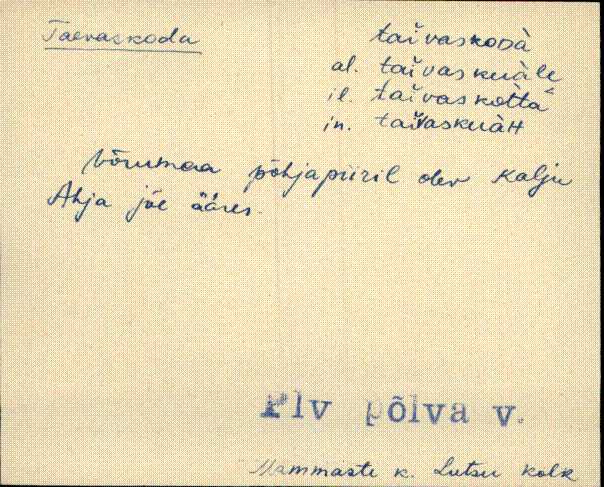 Taevaskoda
taivaskoDà
al. taivaskuàle
il. taivaskòttà
in. taivaskuàH
Võrumaa põhjapiiril olev kalju
Ahja jõe ääres.
Plv põlva v.
Mammaste k. Lutsu kolk